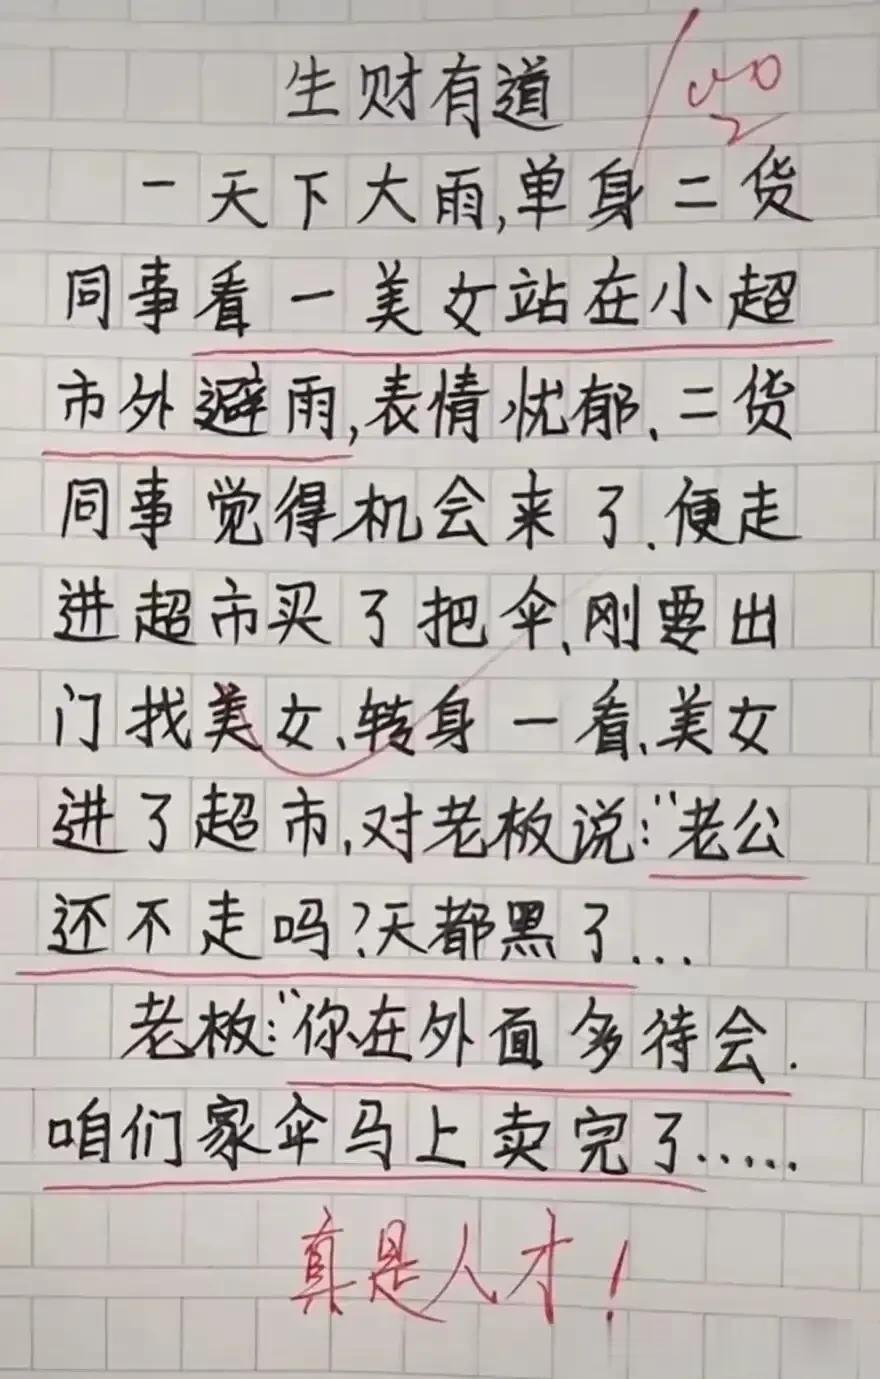 生财有道
100
一天下大雨,单身二货
同事看一美女站在小超
市外避雨,表情忧郁、二货
同事觉得机会来了.便走
进超市买了把伞、刚要出
门找美女、转身一看、美女
进了超市,对老板说:“老公
还不走吗?天都黑了...
老板:“你在外面多待会.
咱们家伞马上卖完了.....
真是人才!